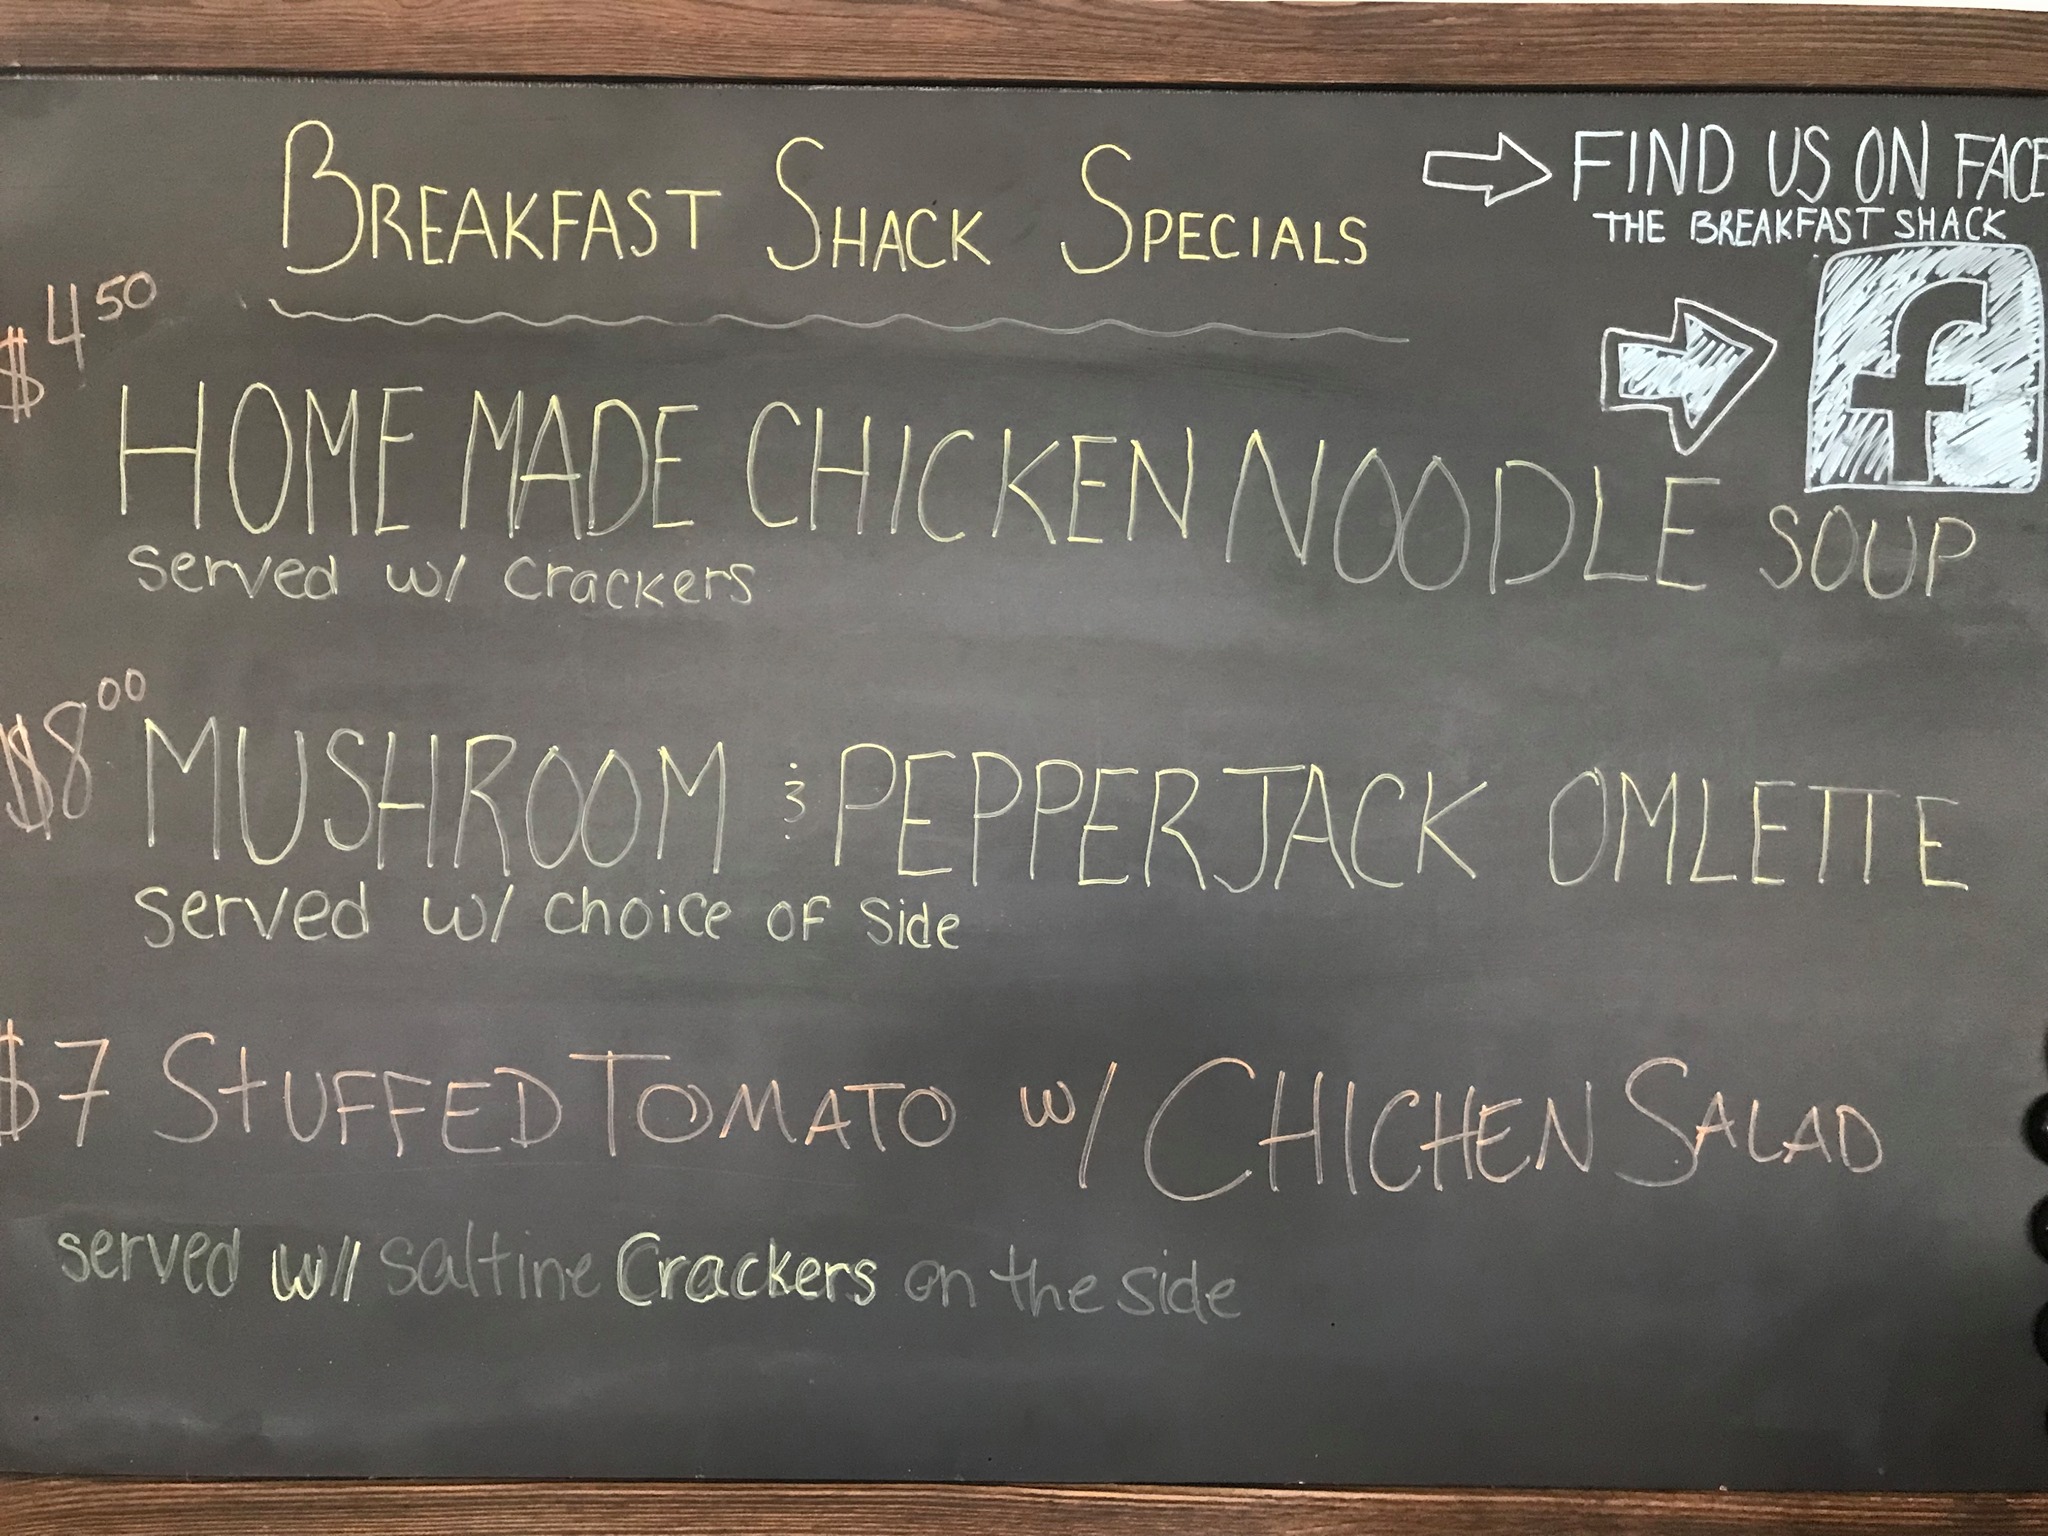 BREAKFAST SHACK SPECIALS
FIND US ON FACE
THE BREAKFAST SHACK
f
$4.50
HOME MADE CHICKEN NOODLE SOUP
served w/ crackers
$8.00
MUSHROOM & PEPPERJACK OMLETTE
served w/ choice OF side
$7 STUFFED TOMATO w/ CHICHEN SALAD
served w// saltine Crackers on the side